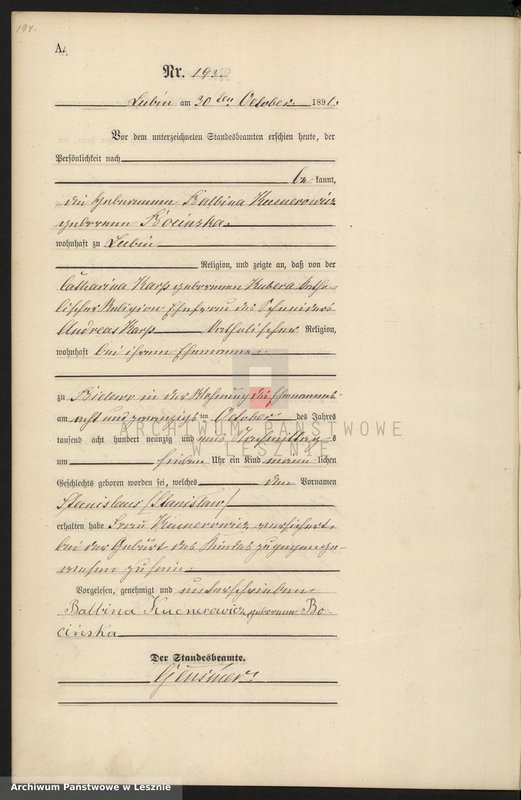 194.
A.
Nr. 193.
Lubin am 30 ten October 1891.
Vor dem unterzeichneten Standesbeamten erschien heute, der
Persönlichkeit nach
be kannt,
die Hebeamme Balbina Kucnerowicz
geborenen Bocinska
wohnhaft zu Lubin
Religion, und zeigte an, daß von der
Catharina Karp geborenen Kubera katho-
lischer Religion Ehefrau des Schneiders
Andreas Karp katholischer Religion,
wohnhaft bei ihrem Ehemanne
zu Bielewo in der Wohnung des Ehemannes
am acht und zwanzigsten October des Jahres
tausend acht hundert neunzig und eins Nachmittags
um sieben Uhr ein Kind männlichen
Geschlechts geboren worden sei, welches den Vornamen
Stanislaus /Stanisław/
erhalten habe. Frau Kucnerowicz versichert,
bei der Geburt des Kindes zugegen ge-
wesen zu sein.
Vorgelesen, genehmigt und unterschrieben
Balbina Kucnerowicz, geborene Bo-
cińska
Der Standesbeamte.
ARCHIWUM PAŃSTWOWE
W LESZNIE
Archiwum Panstwowe w Lesznie